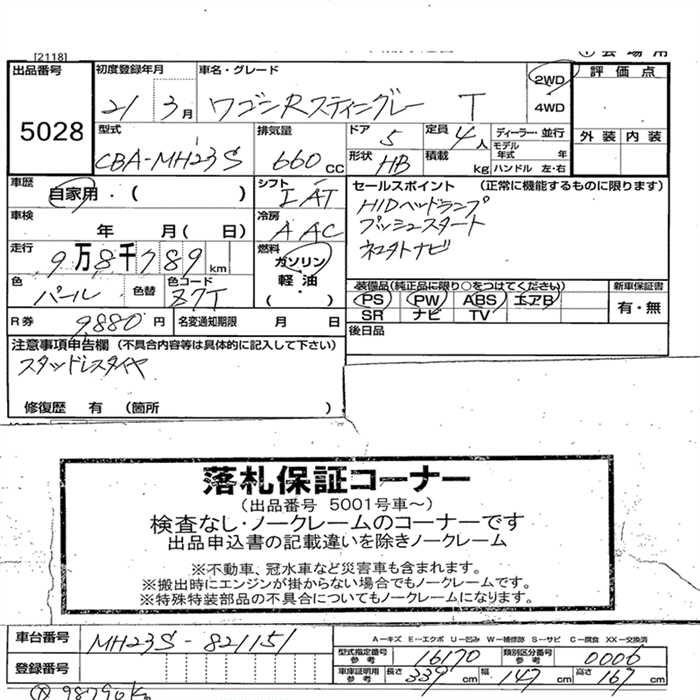 [2118]
出品番号 初度登録年月 車名・グレード 2WD 評価点
5028 21 3月 ワゴンRスティングレー T 4WD
型式 排気量 ドア 定員 ディーラー・並行 外装 内装
CBA-MH23S 660cc 5 4人 モデル年式 年
形状 HB 積載 kg ハンドル 左・右
車歴 自家用・( ) シフト IAT セールスポイント (正常に機能するものに限ります)
車検 年 月( 日) 冷房 AAC HIDヘッドランプ
プッシュスタート
走行 9万8千789km 燃料 ガソリン 軽油・( )
色 パール 色替 色コード Z7T
装備品(純正品に限り○をつけてください) 新車保証書
PS PW ABS エアB 有・無
SR ナビ TV
R券 9,880円 名変通知期限 月 日 後日品
注意事項申告欄 (不具合内容等は具体的に記入して下さい)
スタッドレスタイヤ
修復歴 有 (箇所 )
落札保証コーナー
(出品番号 5001号車~)
検査なし・ノークレームのコーナーです
出品申込書の記載違いを除きノークレーム
※不動車、冠水車など災害車も含まれます。
※搬出時にエンジンが掛からない場合でもノークレームです。
※特殊特装部品の不具合についてもノークレームになります。
車台番号 MH23S-821151 A-キズ E-エクボ U-凹み W-補修跡 S-サビ C-腐食 XX-交換済
登録番号 型式指定番号 参考 16170 類別区分番号 参考 0006
車庫証明用 参考 長さ 339cm 幅 147cm 高さ 167cm
98796K